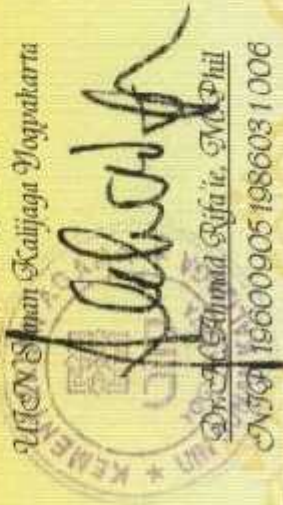 UIN Sunan Kalijaga Yogyakarta
Dr. M. Ahmad Rifa'ie, M. Phil
NIP. 19600905 198603 1 006
KEMEN
UIN